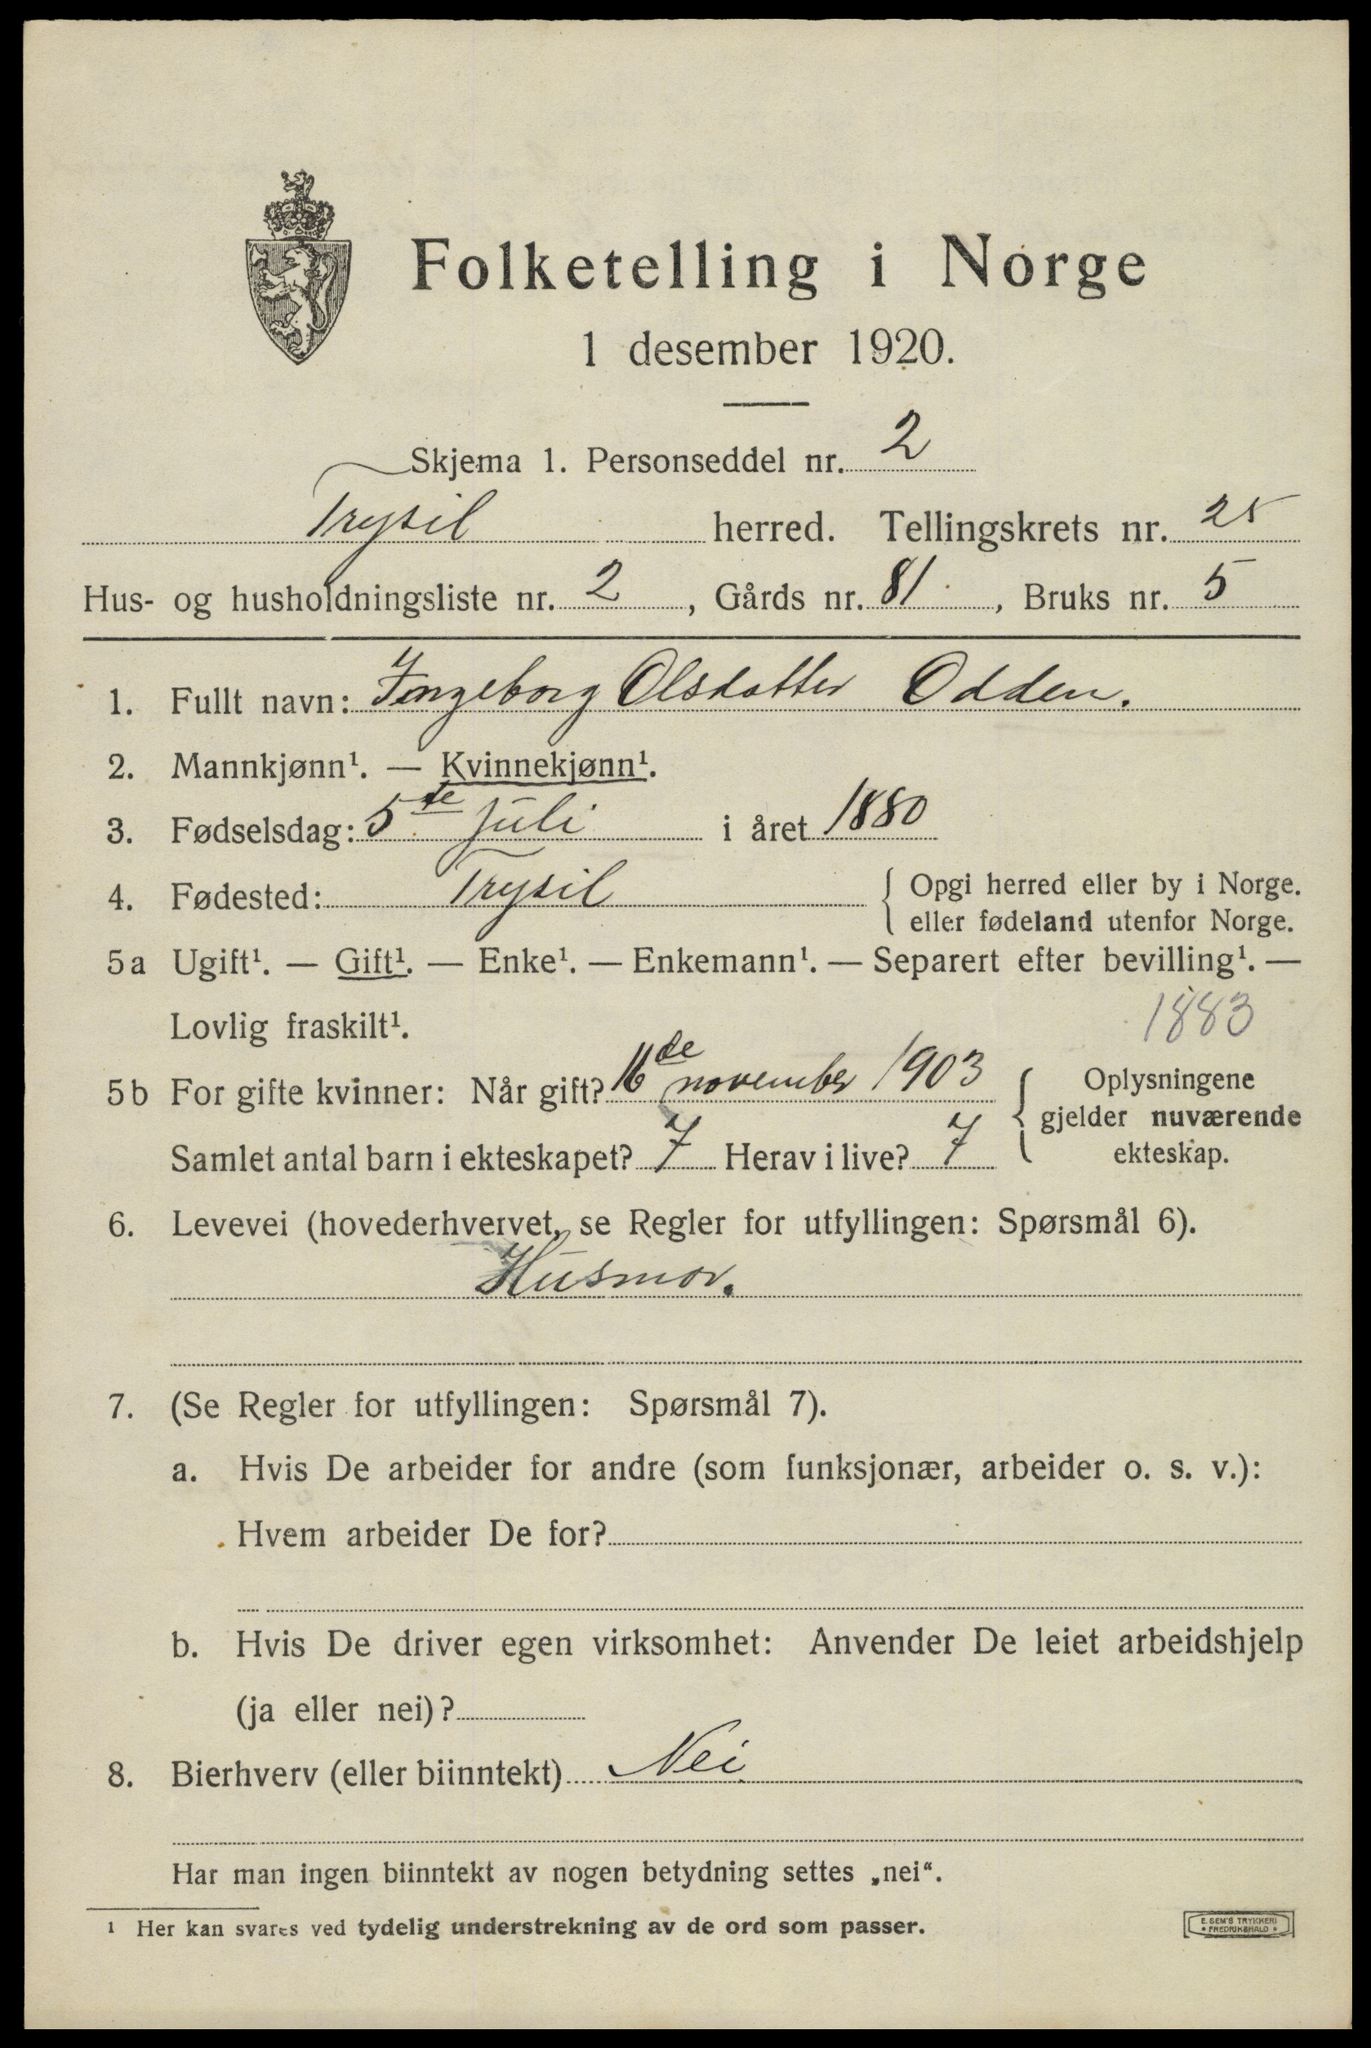 Folketelling i Norge
1 desember 1920.
Skjema 1. Personseddel nr. 2
Trysil herred. Tellingskrets nr. 25
Hus- og husholdningsliste nr. 2, Gårds nr. 81, Bruks nr. 5
1. Fullt navn: Ingeborg Olsdatter Odden.
2. Mannkjønn¹. — Kvinnekjønn¹.
3. Fødselsdag: 5te juli i året 1880
4. Fødested: Trysil { Opgi herred eller by i Norge.
eller fødeland utenfor Norge.
5a Ugift¹. — Gift¹. — Enke¹. — Enkemann¹. — Separert efter bevilling¹. —
Lovlig fraskilt¹. 1883
5b For gifte kvinner: Når gift? 16de november 1903 { Oplysningene
gjelder nuværende
Samlet antal barn i ekteskapet? 7 Herav i live? 7 ekteskap.
6. Levevei (hovederhvervet, se Regler for utfyllingen: Spørsmål 6).
Husmor.
7. (Se Regler for utfyllingen: Spørsmål 7).
a. Hvis De arbeider for andre (som funksjonær, arbeider o. s. v.):
Hvem arbeider De for?
b. Hvis De driver egen virksomhet: Anvender De leiet arbeidshjelp
(ja eller nei)?
8. Bierhverv (eller biinntekt) Nei
Har man ingen biinntekt av nogen betydning settes „nei“.
¹ Her kan svares ved tydelig understrekning av de ord som passer.
E. SEM'S TRYKKERI
• FREDRIKSHALD •